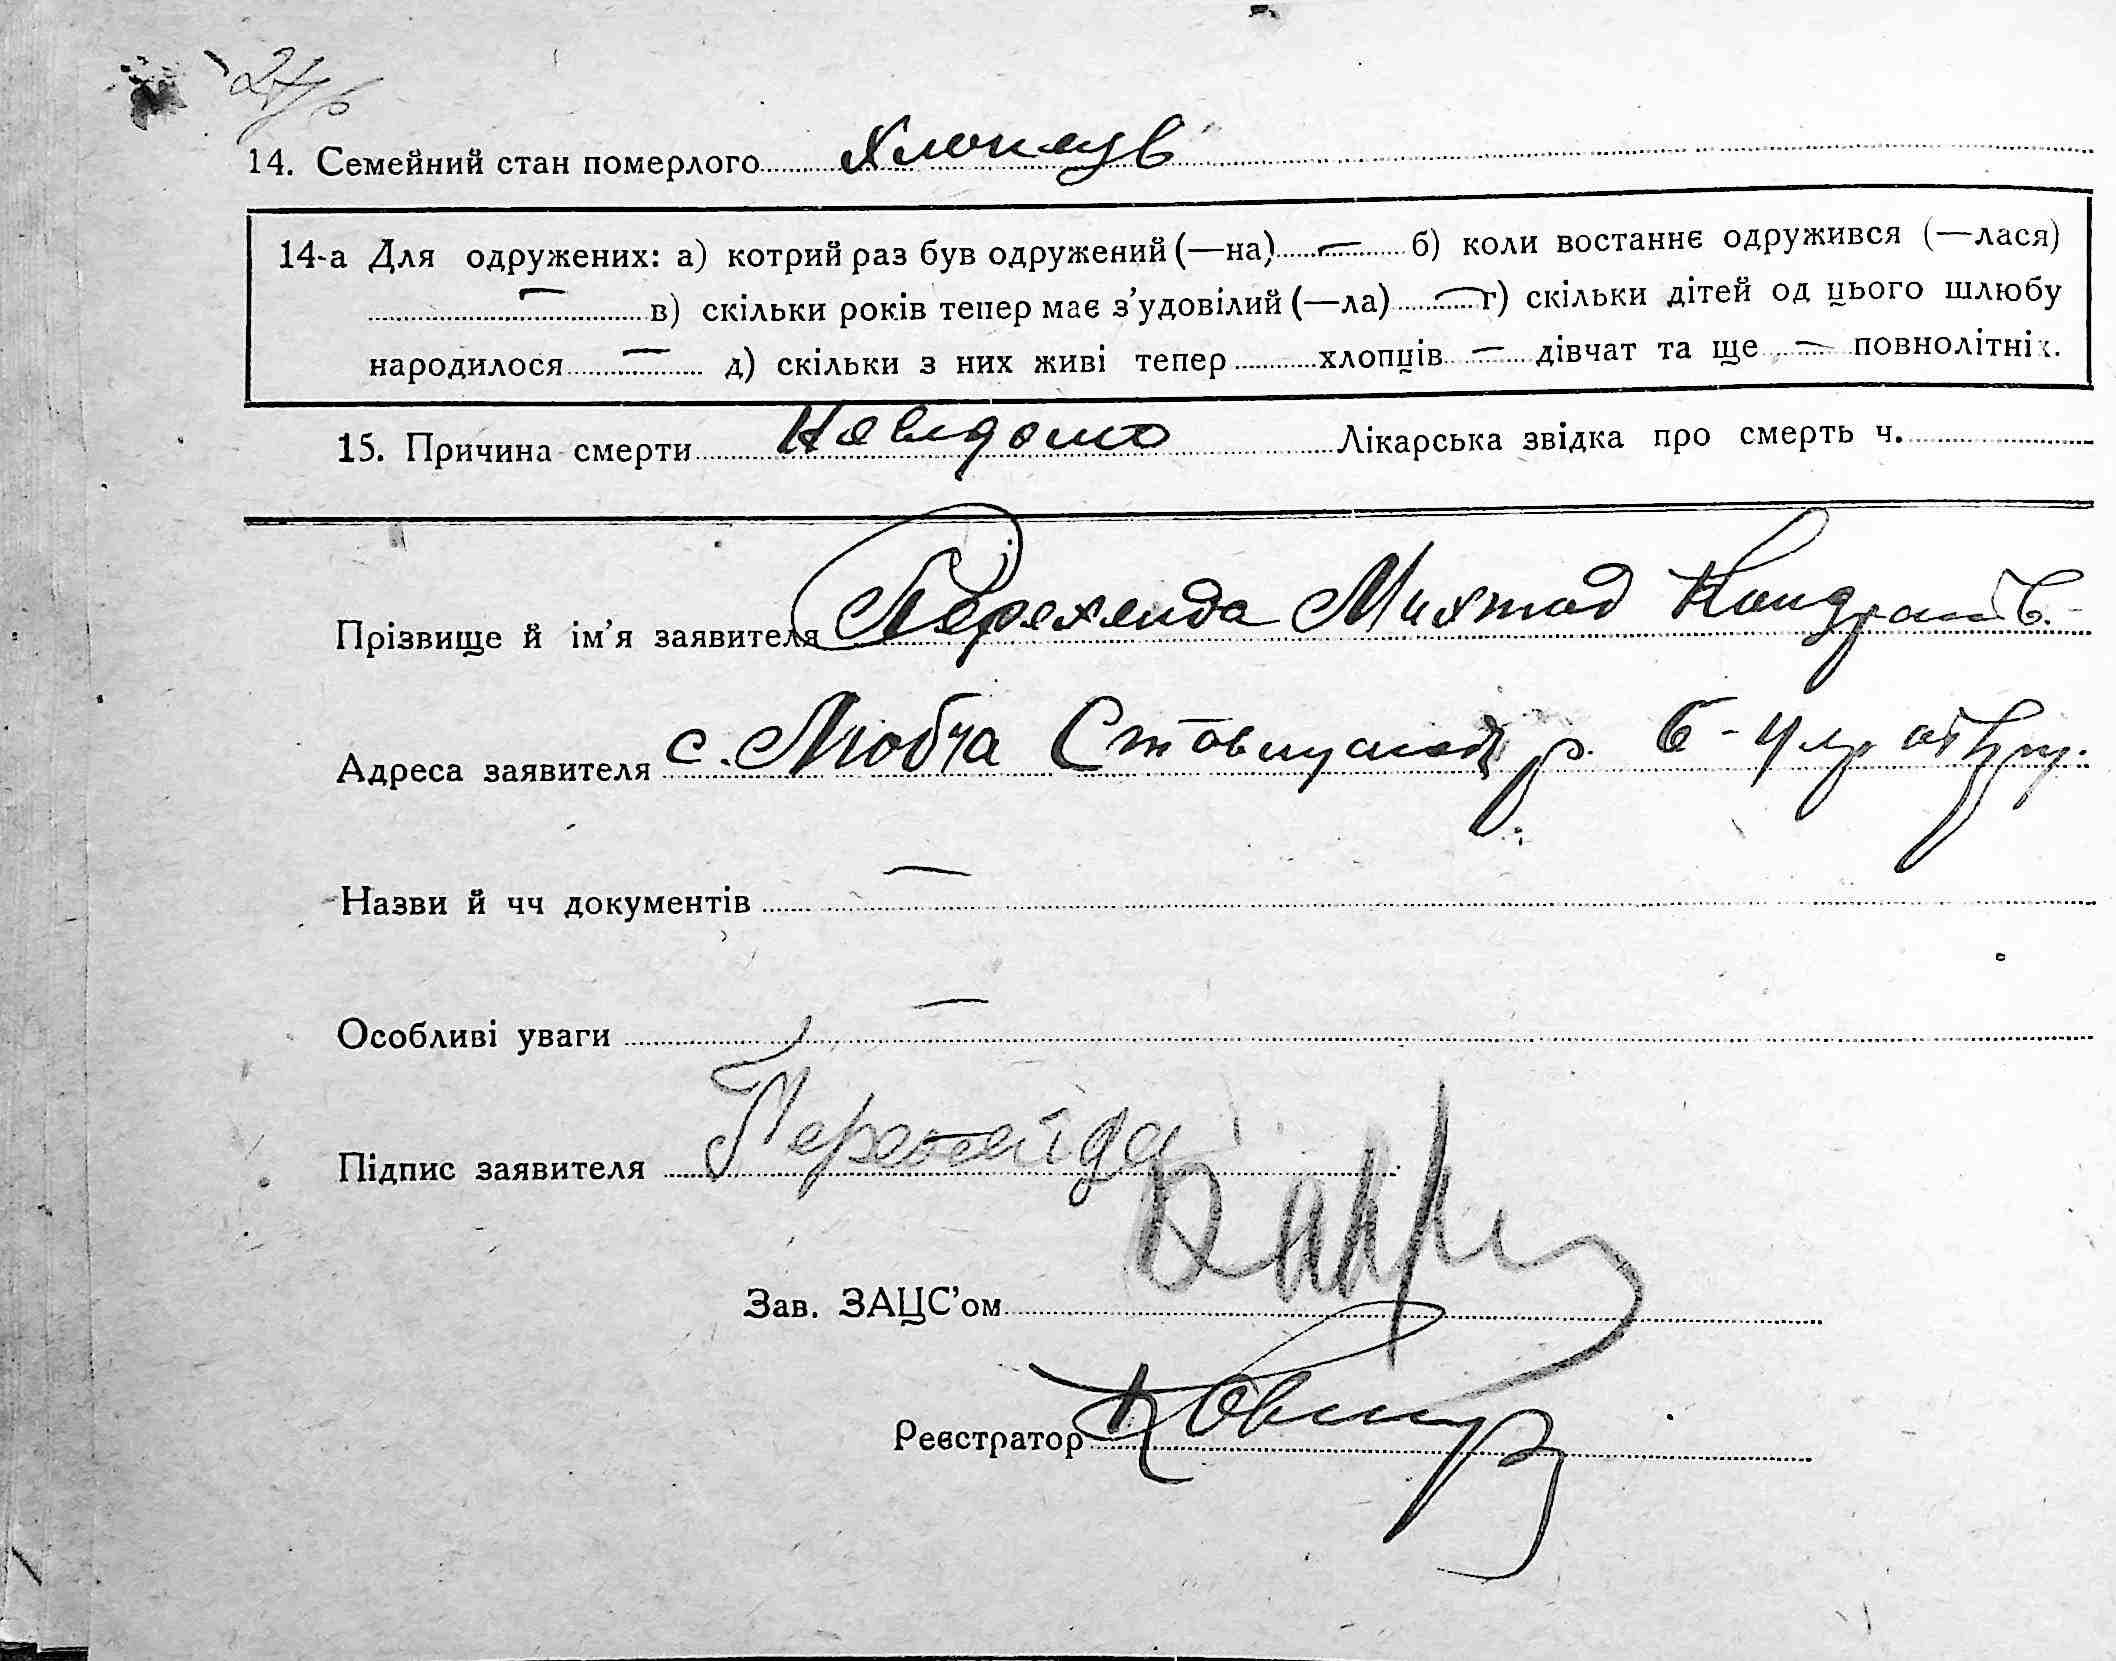 14. Семейний стан померлого Хлопець
14-а Для одружених: а) котрий раз був одружений (—на) — б) коли востаннє одружився (—лася)
— в) скільки років тепер має з’удовілий (—ла) — г) скільки дітей од цього шлюбу
народилося — д) скільки з них живі тепер хлопців — дівчат та ще — повнолітніх.
15. Причина смерти Невідомо Лікарська звідка про смерть ч.
Прізвище й ім’я заявителя Перехейда Михтод Кондратів.
Адреса заявителя с. Любча Ставищанськ р. Б-Церк окр.
Назви й чч документів —
Особливі уваги —
Підпис заявителя Перехейда
Зав. ЗАЦС’ом
Реєстратор